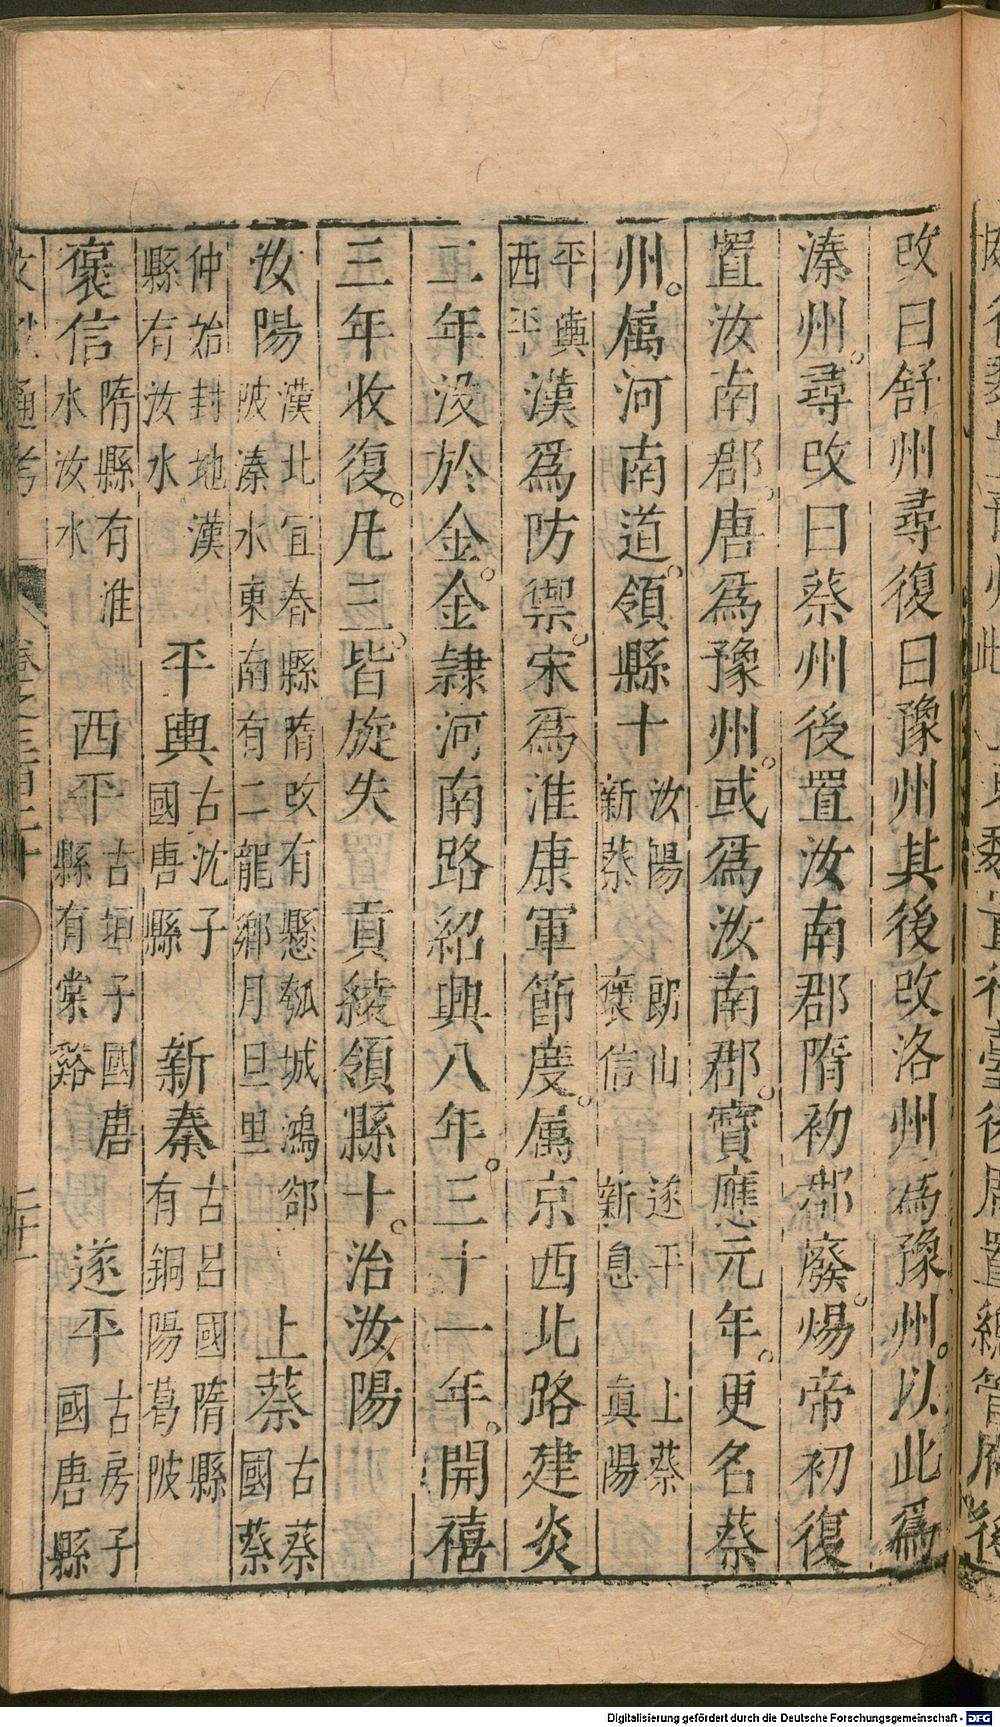 改曰舒州尋復曰豫州其後改洛州為豫州。以此為
溱州。尋改曰蔡州後置汝南郡隋初郡廢。煬帝初復
置汝南郡。唐爲豫州。或爲汝南郡。寶應元年。更名蔡
州。属河南道。領縣十汝陽 郎山 遂平 上蔡
新蔡 褒信 新息 真陽
平輿
西平漢爲防禦。宋爲淮康軍節度。属京西北路建炎
二年没於金。金隷河南路紹興八年。三十一年。開禧
三年收復。凡三。皆旋失 貢綾領縣十。治汝陽
汝陽漢北宜春縣隋改有懸瓠城鴻郤
陂溱水東南有二龍鄉月旦里 上蔡古蔡
國蔡
仲始封地漢
縣有汝水 平輿古沈子
國唐縣 新秦古呂國隋縣
有銅陽葛陂
褒信隋縣有淮
水汝水 西平古垣子國唐
縣有棠谿 遂平古房子
國唐縣
Digitalisierung gefördert durch die Deutsche Forschungsgemeinschaft - DFG